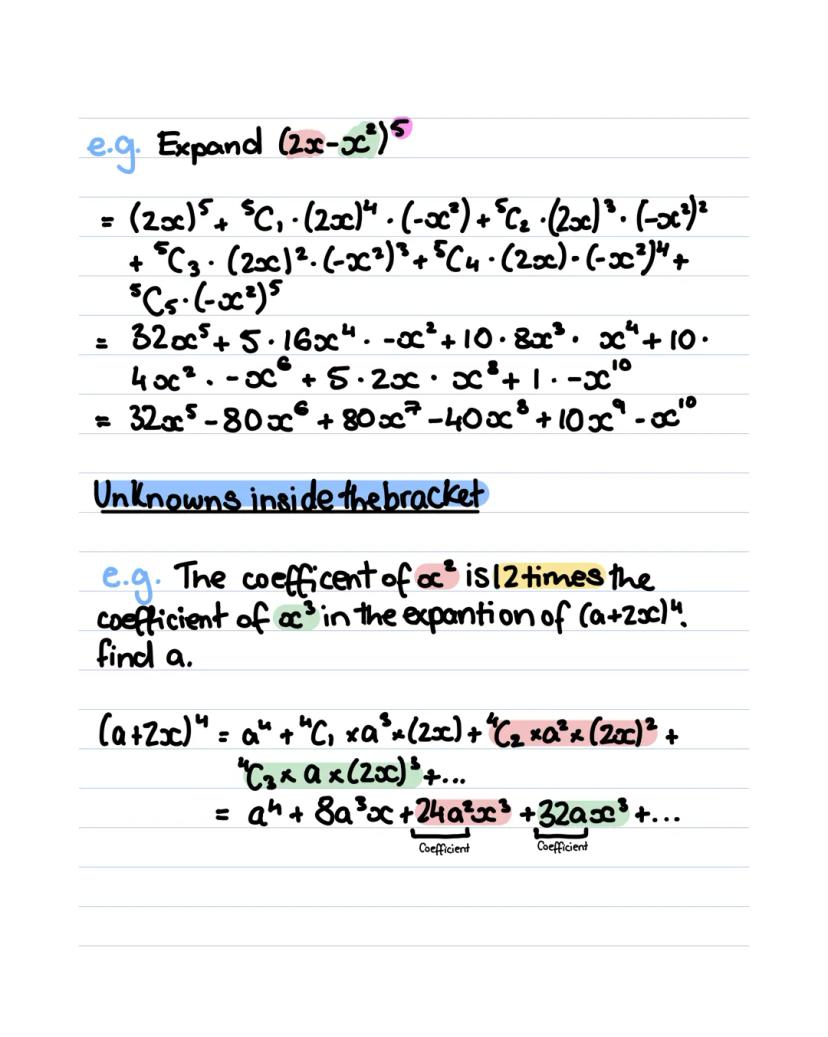 e.g. Expand (2x-x²)⁵
= (2x)⁵ + ⁵C₁·(2x)⁴·(-x²)+⁵C₂·(2x)³·(-x²)²
+ ⁵C₃·(2x)²·(-x²)³+⁵C₄·(2x)·(-x²)⁴+
⁵C₅·(-x²)⁵
= 32x⁵+5·16x⁴·-x²+10·8x³·x⁴+10·
4x²·-x⁶+5·2x·x⁸+1·-x¹⁰
= 32x⁵-80x⁶+80x⁷-40x⁸+10x⁹-x¹⁰
Unknowns inside the bracket
e.g. The coefficent of x² is 12 times the
coefficient of x³ in the expantion of (a+2x)⁴.
find a.
(a+2x)⁴ = a⁴+⁴C₁×a³×(2x)+⁴C₂×a²×(2x)²+
⁴C₃×a×(2x)³+...
= a⁴+8a³x+24a²x³+32ax³+...
Coefficient Coefficient